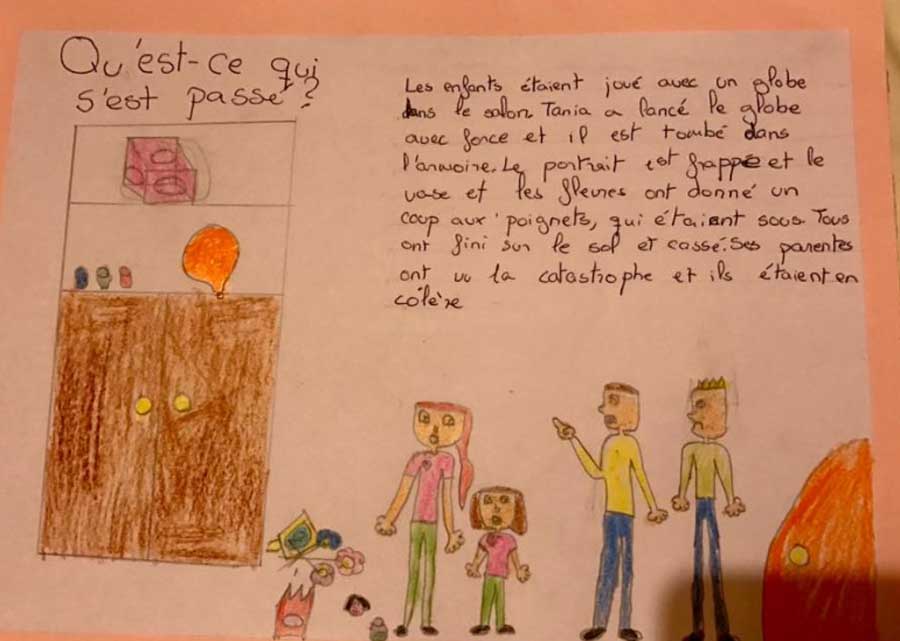 Qu'est-ce qui
s'est passé ?
Les enfants étaient joué avec un globe
dans le salon. Tania a lancé le globe
avec force et il est tombé dans
l'armoire. Le portrait est frappé et le
vase et les fleures ont donné un
coup aux poignets, qui étaient sous. Tous
ont fini sur le sol et cassé. Ses parentes
ont vu la catastrophe et ils étaient en
colère